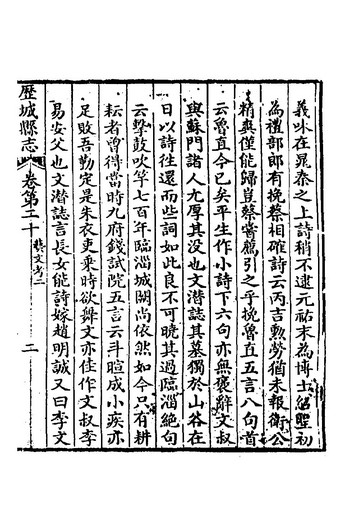 義味在晁秦之上詩稍不逮元祐末為博士紹聖初
為禮部郎有挽蔡相確詩云丙吉勲勞猶未報衛公
精爽僅能歸豈蔡嘗薦引之乎挽魯直五言八句首
云魯直今已矣平生作小詩下六句亦無褒辭文叔
與蘇門諸人尤厚其没也文潛誌其墓獨於山谷在
日以詩往還而些詞如此良不可曉其過臨淄絶句
云擊鼓吹竽七百年臨淄城闕尚依然如今只有耕
耘者曾得當時九府錢試院五言云斗暄成小疾亦
足敗吾勤定是朱衣吏乗時欲舞文亦佳作文叔李
易安父也文潛誌言長女能詩嫁趙明誠又曰李文
歷城縣志
卷第二十
藝文考二
二